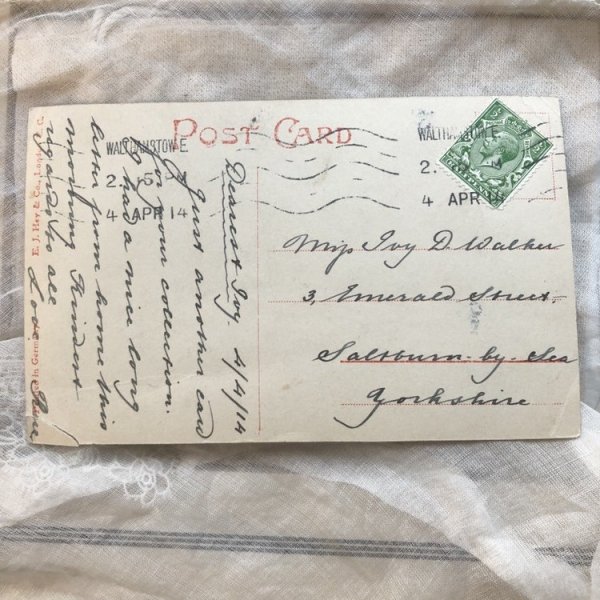 POST CARD
WALTHAMSTOW E
2. 5 M
4 APR 14
WALTHAMSTOW E
2. M
4 APR 1
Dearest Ivy. 4/4/14
Just another card
for your collection.
I had a nice long
letter from home this
morning. Kindest
regards to all
Love.
Miss Ivy D. Walker
3, Emerald Street,
Saltburn-by-Sea
Yorkshire
E. J. Hey & Co., London, E.C.
in Germany